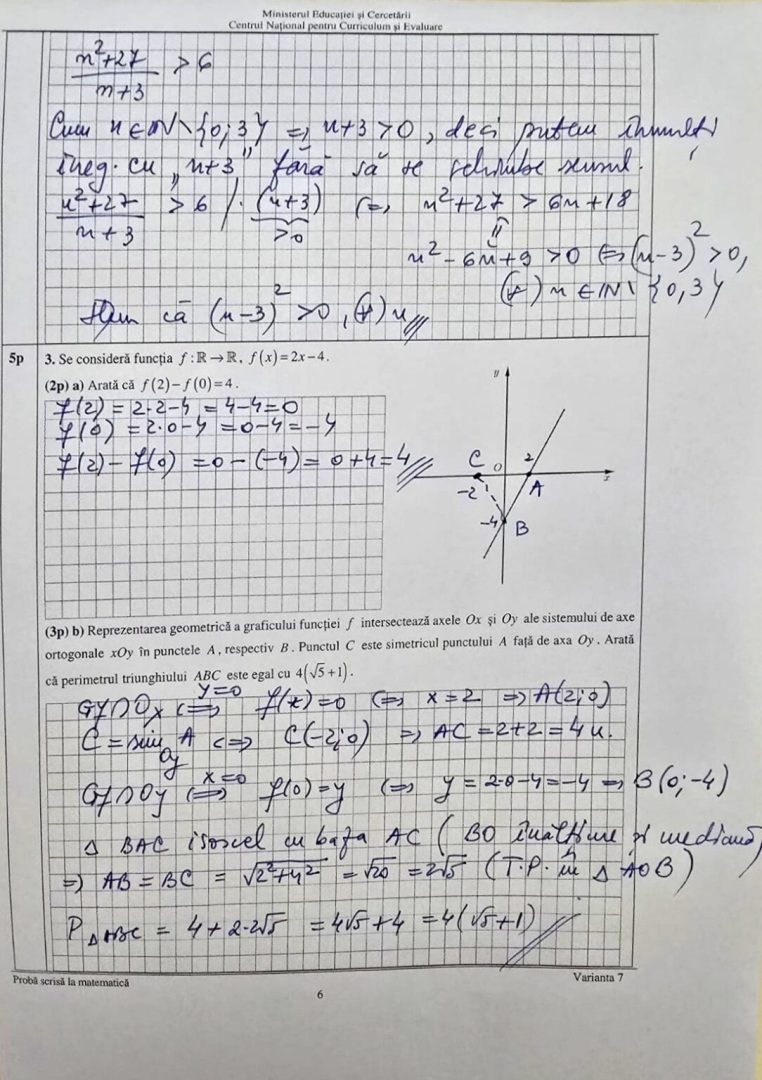 Ministerul Educației și Cercetării
Centrul Național pentru Curriculum și Evaluare
n²+27 / n+3 > 6
Cum n ∈ ℕ \ {0;3} ⇒ n+3 > 0, deci putem înmulți
ineg. cu „n+3” fără să se schimbe sensul.
n²+27 / n+3 > 6 / · (n+3) ⇔ n²+27 > 6n+18
>0
n² - 6n + 9 > 0 ⇔ (n-3)² > 0,
(∀) n ∈ ℕ \ {0,3}
că (n-3)² > 0, (∀) n
5p
3. Se consideră funcția f : ℝ → ℝ, f(x) = 2x – 4.
(2p) a) Arată că f(2) – f(0) = 4.
f(2) = 2·2-4 = 4-4 = 0
f(0) = 2·0-4 = 0-4 = -4
f(2) - f(0) = 0 - (-4) = 0+4 = 4
y
C
O
2
x
-2
A
-4
B
(3p) b) Reprezentarea geometrică a graficului funcției f intersectează axele Ox și Oy ale sistemului de axe
ortogonale xOy în punctele A, respectiv B. Punctul C este simetricul punctului A față de axa Oy. Arată
că perimetrul triunghiului ABC este egal cu 4(√5+1).
Gf∩Ox ⇔ y=0 f(x)=0 ⇔ x=2 ⇒ A(2;0)
C = sim Oy A ⇔ C(-2;0) ⇒ AC = 2+2 = 4 u.
Gf∩Oy ⇔ x=0 f(0)=y ⇔ y = 2·0-4 = -4 ⇒ B(0;-4)
Δ BAC isoscel cu baza AC (BO înălțime și mediană)
⇒ AB = BC = √2²+4² = √20 = 2√5 (T.P. în Δ AOB)
P ΔABC = 4+2·2√5 = 4√5+4 = 4(√5+1)
Probă scrisă la matematică
Varianta 7
6